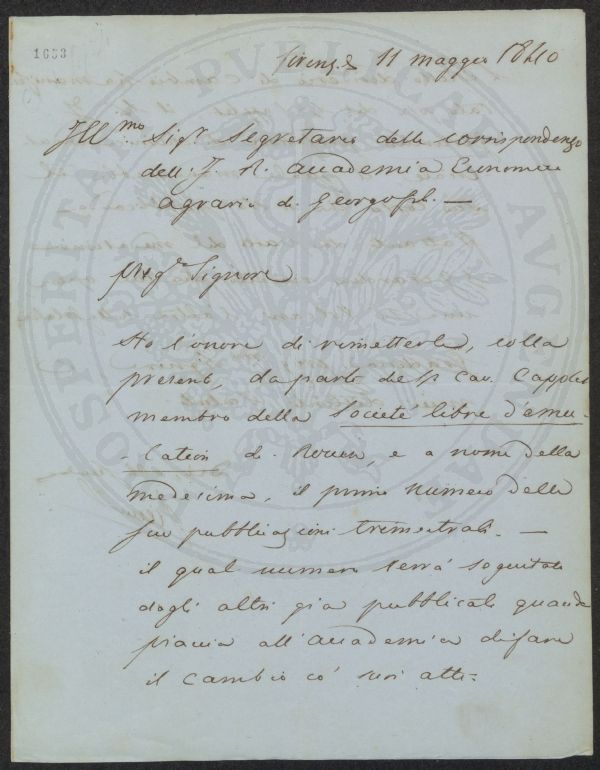 1633
Firenze 11 maggio 1840
Ill.mo Sigr Segretario delle corrispondenze
dell' I. R. Accademia Economico
agraria di Georgofili. —
Preg.o Signore
Ho l'onore di rimetterle, colla
presente, da parte del Cav.
membro della Societé libre d'emu-
-lation di Rouen, e a nome della
medesima, il primo numero delle
sue pubblicazioni trimestrali. —
il qual numero serrà seguitato
dagli altri già pubblicati quando
piaccia all'accademia di fare
il cambio co' suoi atti =
PROSPERITATI PUBLICAE AUGENDAE